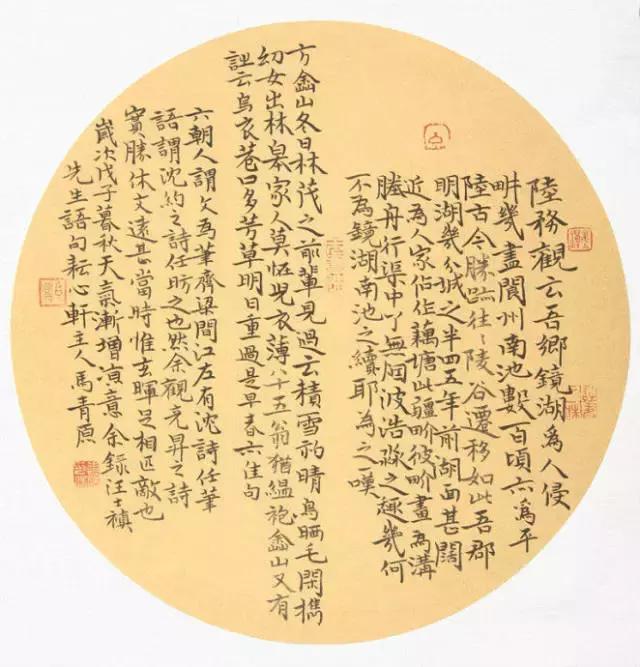 陸務觀云吾鄉鏡湖為人侵
畊幾盡閬州南池數百頃亦為平
陸古今勝蹟往〻陵谷遷移如此吾郡
明湖幾分城之半四五年前湖面甚闊
近為人家佔作藕塘此疆畍彼畍畫為溝
塍舟行渠中了無洄波浩淼之趣幾何
不為鏡湖南池之續耶為之一嘆
方盦山冬日林茂之前輩見過云積雪初晴鳥晒毛閑攜
幼女出林皋家人莫怪兒衣薄八十五翁猶縕袍盦山又有
云烏衣巷口多芳草明日重過是早春亦佳句
六朝人謂文為筆齊梁間江左有沈詩任筆
語謂沈約之詩任昉之也然余觀彥昇之詩
實勝休文遠甚當時惟玄暉足相匹敵也
歲次戊子暮秋天氣漸增涼意余錄汪士禛
先生語句耘心軒主人馬青原